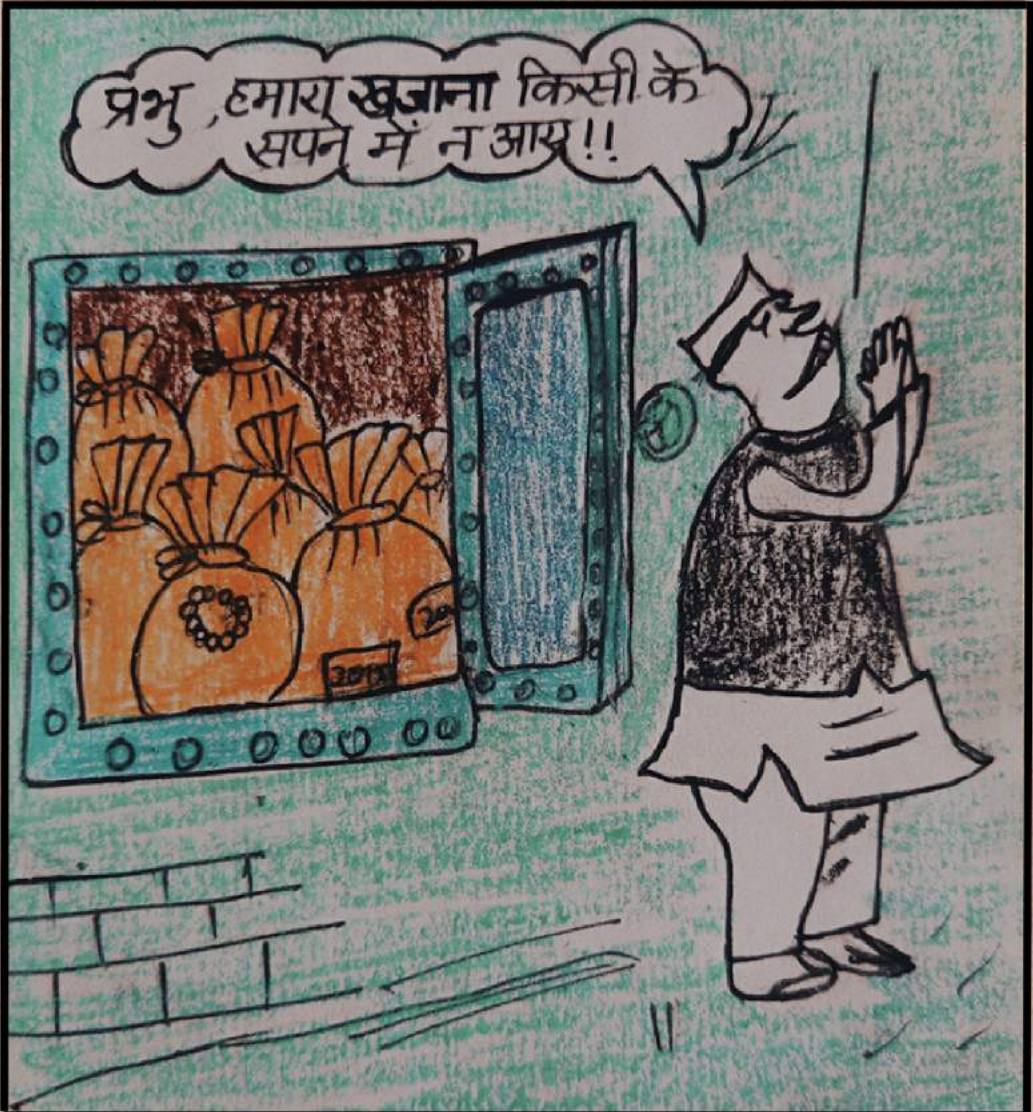 प्रभु, हमारा खजाना किसी के
सपने में न आए!!